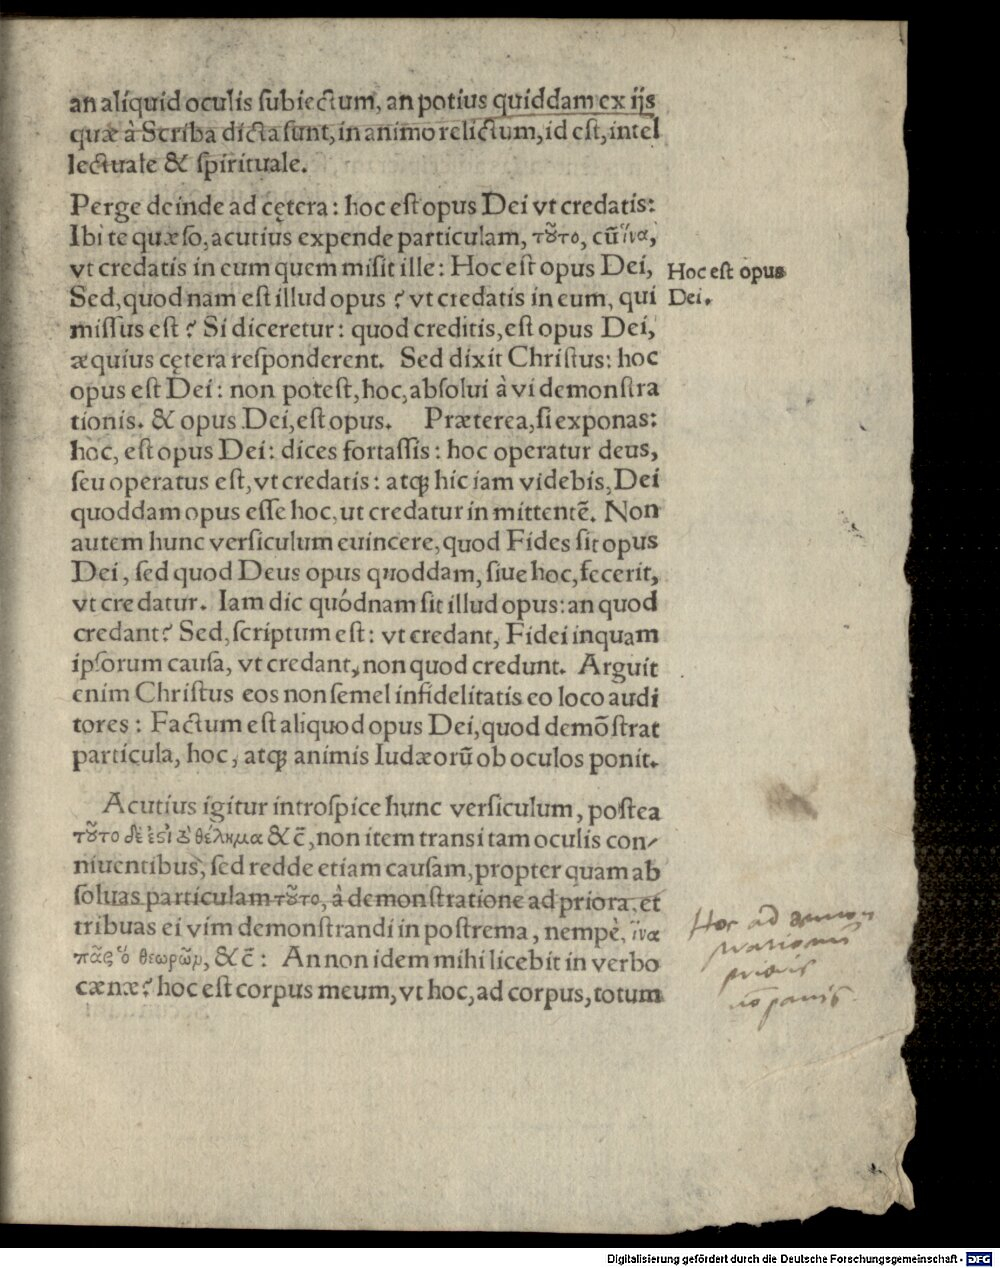 an aliquid oculis subiectum, an potius quiddam ex ijs
quæ à Scriba dicta sunt, in animo relictum, id est, intel
lectuale & spirituale.
Perge deinde ad cętera: hoc est opus Dei vt credatis:
Ibi te quæso, acutius expende particulam, τȣ͂το, cū ἵνα,
vt credatis in eum quem misit ille: Hoc est opus Dei,
Hoc est opus
Dei.
Sed, quod nam est illud opus ? vt credatis in eum, qui
missus est ? Si diceretur: quod creditis, est opus Dei,
æquius cętera responderent. Sed dixit Christus: hoc
opus est Dei: non potest, hoc, absolui à vi demonstra
tionis. & opus Dei, est opus. Præterea, si exponas:
hoc, est opus Dei: dices fortassis: hoc operatur deus,
seu operatus est, vt credatis: atq; hic iam videbis, Dei
quoddam opus esse hoc, ut credatur in mittentē. Non
autem hunc versiculum euincere, quod Fides sit opus
Dei, sed quod Deus opus quoddam, siue hoc, fecerit,
vt credatur. Iam dic quódnam sit illud opus: an quod
credant? Sed, scriptum est: vt credant, Fidei inquam
ipsorum causa, vt credant, non quod credunt. Arguit
enim Christus eos non semel infidelitatis eo loco audi
tores: Factum est aliquod opus Dei, quod demōstrat
particula, hoc, atq; animis Iudæorū ob oculos ponit.
Acutius igitur introspice hunc versiculum, postea
τȣ͂το δέ ἐϛι τὸ θέλημα & c̄, non item transi tam oculis con-
niuentibus, sed redde etiam causam, propter quam ab
soluas particulam τȣ͂το, à demonstratione ad priora, et
tribuas ei vim demonstrandi in postrema, nempè, ἵνα
πᾶς ὁ θεωρῶν, & c̄: An non idem mihi licebit in verbo
cænæ? hoc est corpus meum, vt hoc, ad corpus, totum
Hoc ad
prioris
nō panis
Digitalisierung gefördert durch die Deutsche Forschungsgemeinschaft - DFG